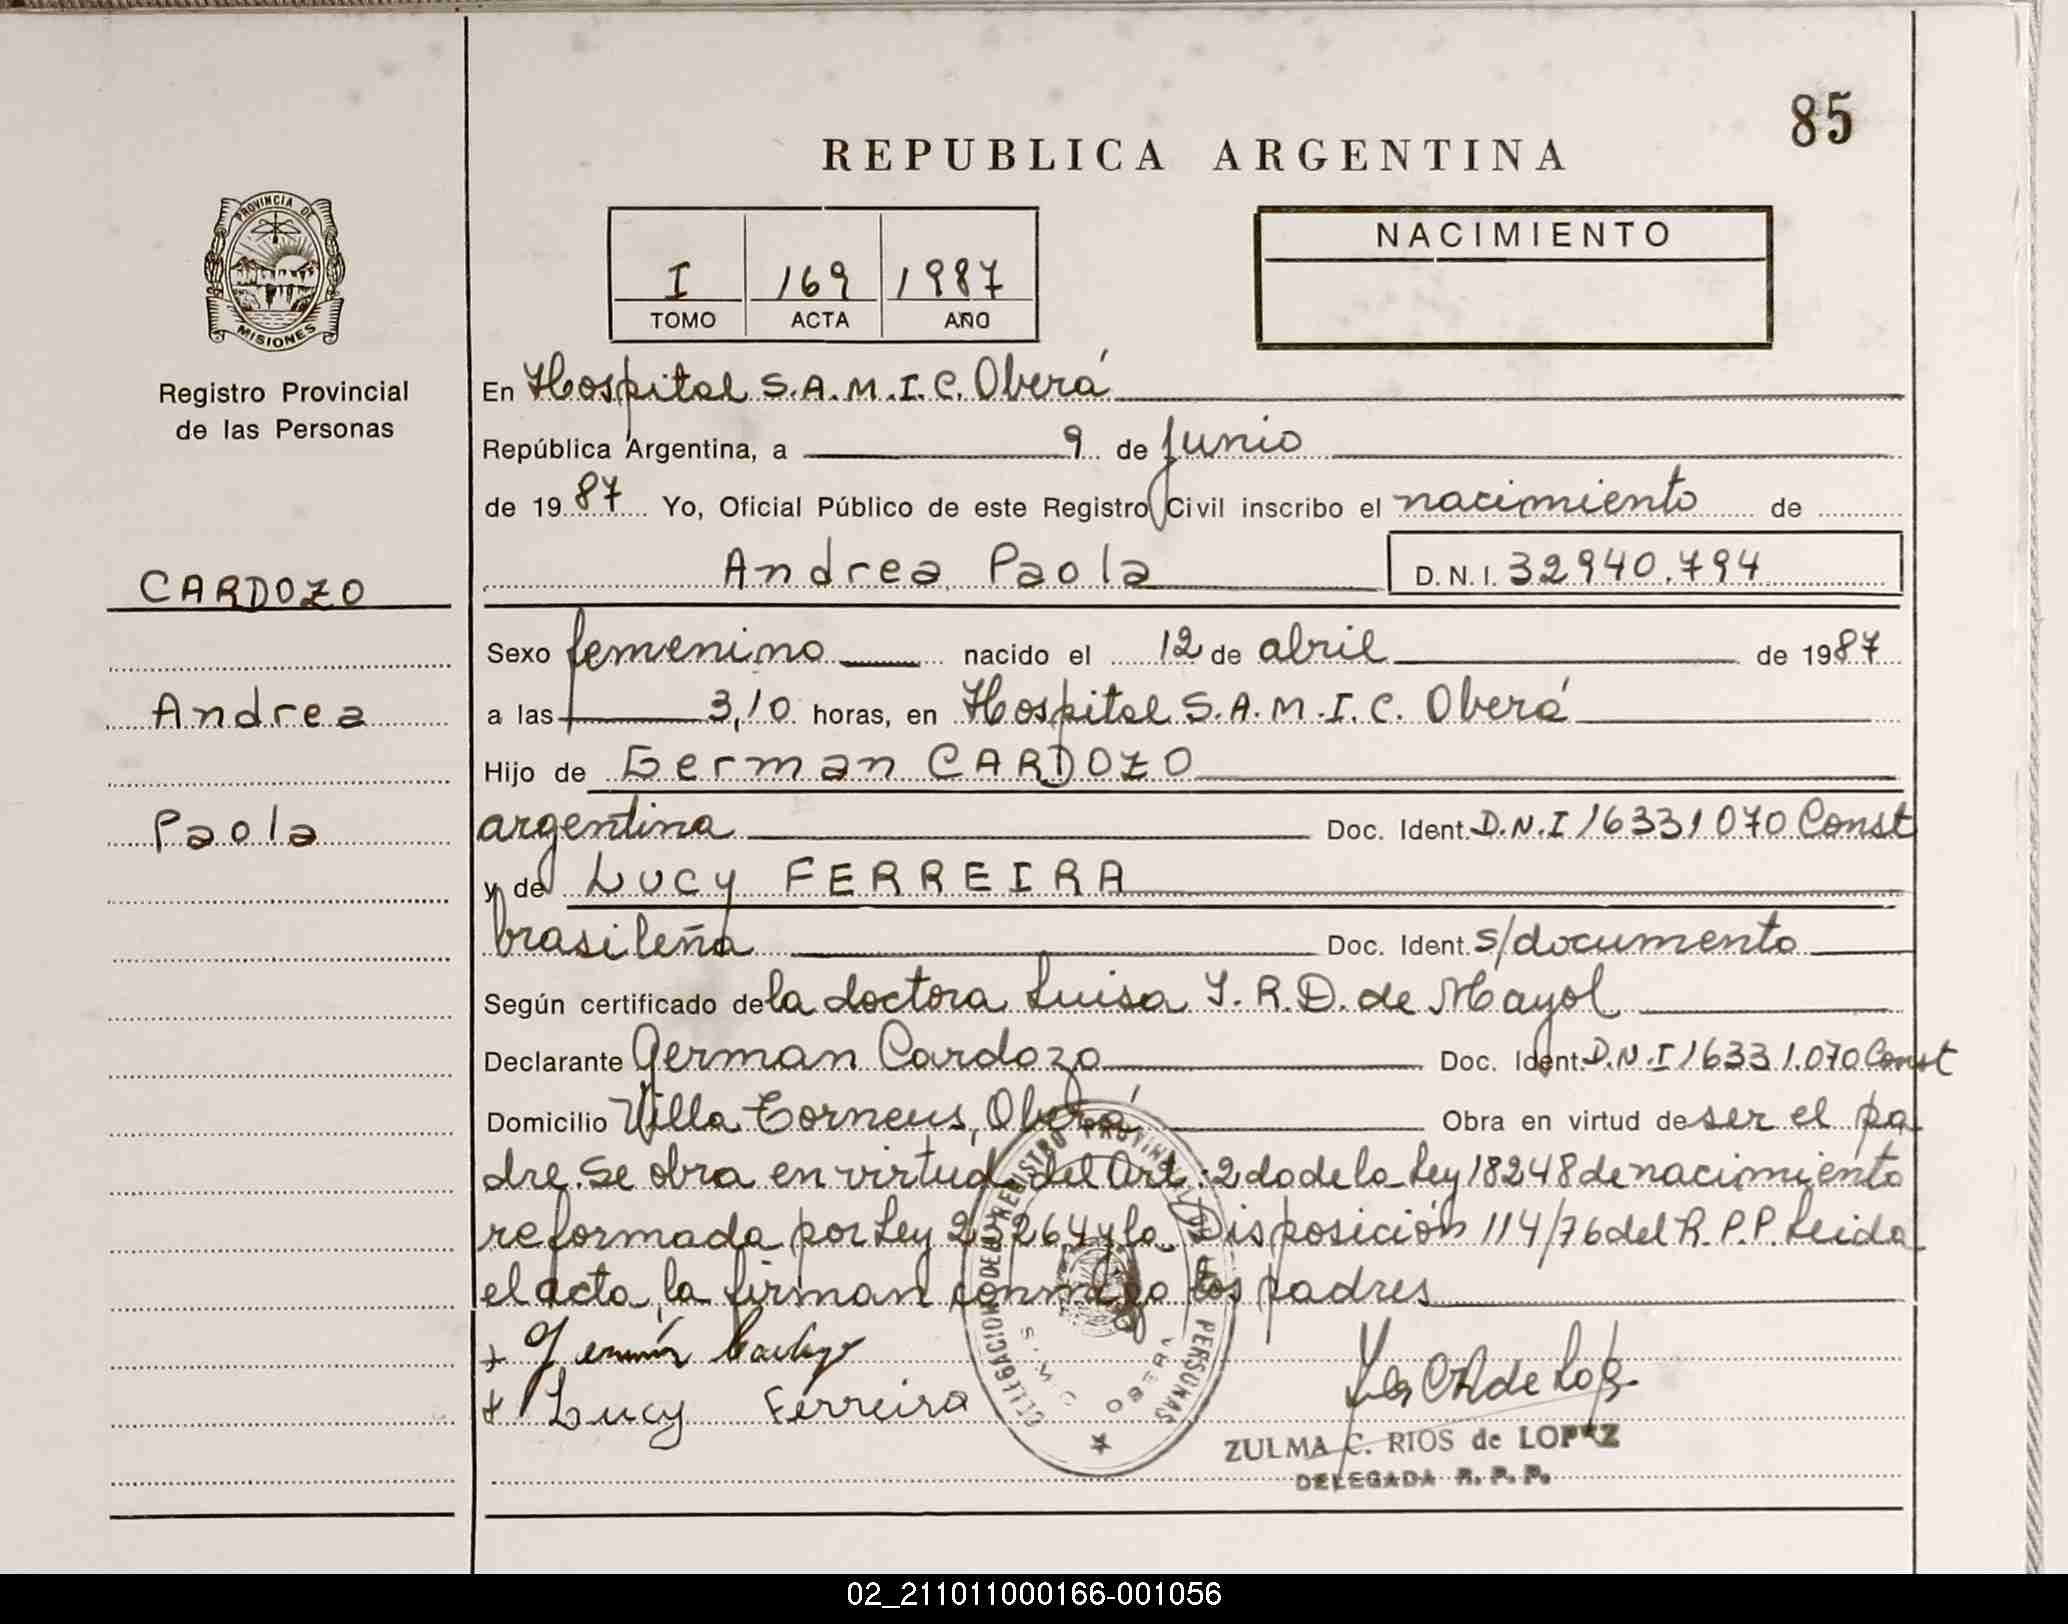 85
REPUBLICA ARGENTINA
PROVINCIA DE
MISIONES
Registro Provincial
de las Personas
I 169 1987
TOMO ACTA AÑO
NACIMIENTO
En Hospital S.A.M.I.C. Oberá
República Argentina, a 9 de Junio
de 1987 Yo, Oficial Público de este Registro Civil inscribo el nacimiento de
Andrea Paola D.N.I. 32940.794
CARDOZO
Sexo femenino nacido el 12 de abril de 1987
Andrea
a las 3,10 horas, en Hospital S.A.M.I.C. Oberá
Hijo de German CARDOZO
Paola
argentina Doc. Ident. D.N.I 16331070 Const
y de Lucy FERREIRA
brasileña Doc. Ident. s/documento
Según certificado de la doctora Luisa Y.R.D. de Mayol
Declarante German Cardozo Doc. Ident. D.N.I 16331.070 Const
Domicilio Villa Torneus, Oberá Obra en virtud de ser el pa
dre. Se obra en virtud del Art. 2do de la Ley 18248 de nacimiento
reformada por Ley 23264 y la Disposición 114/76 del R.P.P. Leida
el acta, la firman conmigo los padres
Lucy Ferreira
DELEGACION DEL REGISTRO PROVINCIAL DE LAS PERSONAS
S.A.M.I.C. OBERA
ZULMA C. RIOS de LOPEZ
DELEGADA R.P.P.
02_211011000166-001056